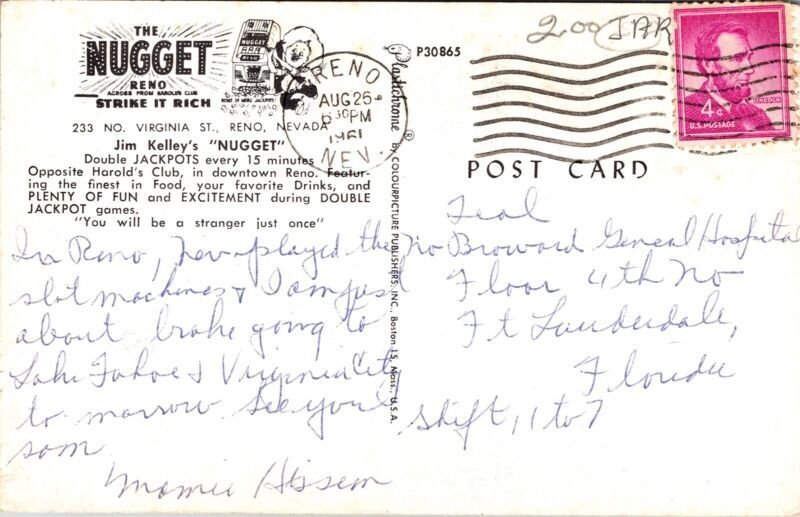 THE
NUGGET
RENO
ACROSS FROM HAROLDS CLUB
STRIKE IT RICH
NUGGET
RENO
HOME OF MORE JACKPOTS!
233 NO. VIRGINIA ST., RENO, NEVADA
Jim Kelley's "NUGGET"
Double JACKPOTS every 15 minutes
Opposite Harold's Club, in downtown Reno. Featur-
ing the finest in Food, your favorite Drinks, and
PLENTY OF FUN and EXCITEMENT during DOUBLE
JACKPOT games.
"You will be a stranger just once"
RENO
AUG 25
6 30 PM
1961
NEV.
In Reno, Nev played the
slot machines & I am just
about broke going to
Lake Tahoe & Virginia City
to morrow. See you
soon
Mamie
Plastichrome ® by COLOURPICTURE PUBLISHERS, INC., Boston 15, Mass., U.S.A.
P30865
2.00 JAR
4¢
LINCOLN
U.S. POSTAGE
POST CARD
Teal
No Broward General Hospital
Floor 4th No
Ft Lauderdale,
Florida
Shift, 11 to 7